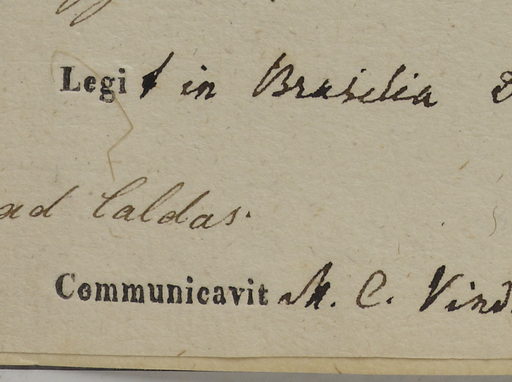 Legit in Brasilia
ad Caldas.
Communicavit M. C. Vind